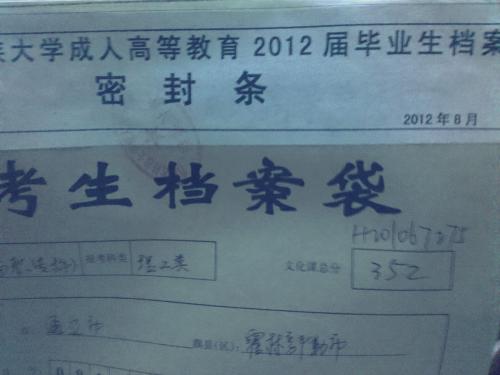 大学成人高等教育 2012 届毕业生档案
密封条
2012 年 8 月
考生档案袋
报考科类 理工类
文化课总分 352
通辽市
旗县(区): 霍林郭勒市